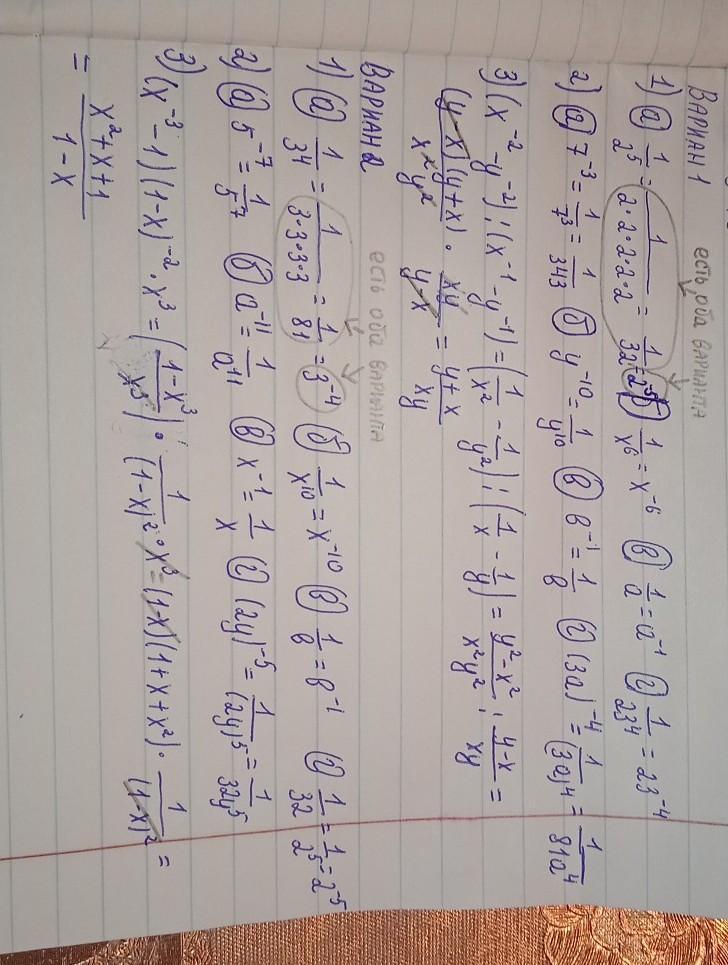 ВАРИАН 1
есть оба варианта
1) а) 1/2⁵ = 1/(2·2·2·2·2) = 1/32 = 2⁻⁵ б) 1/x⁶ = x⁻⁶ в) 1/a = a⁻¹ г) 1/23⁴ = 23⁻⁴
2) а) 7⁻³ = 1/7³ = 1/343 б) y⁻¹⁰ = 1/y¹⁰ в) в⁻¹ = 1/в г) (3a)⁻⁴ = 1/(3a)⁴ = 1/81a⁴
3) (x⁻² - y⁻²) : (x⁻¹ - y⁻¹) = (1/x² - 1/y²) : (1/x - 1/y) = (y² - x²)/x²y² : (y - x)/xy =
(y - x)(y + x)/x²y² · xy/(y - x) = (y + x)/xy
ВАРИАН 2
есть оба варианта
1) а) 1/34 = 1/(3·3·3·3) = 1/81 = 3⁻⁴ б) 1/x¹⁰ = x⁻¹⁰ в) 1/в = в⁻¹ г) 1/32 = 1/2⁵ = 2⁻⁵
2) а) 5⁻⁷ = 1/5⁷ б) a⁻¹¹ = 1/a¹¹ в) x⁻¹ = 1/x г) (2y)⁻⁵ = 1/(2y)⁵ = 1/32y⁵
3) (x⁻³ - 1)(1 - x)⁻² · x³ = ((1 - x³)/x³) · 1/(1 - x)² · x³ = (1 - x)(1 + x + x²) · 1/(1 - x)² =
= (x² + x + 1)/(1 - x)